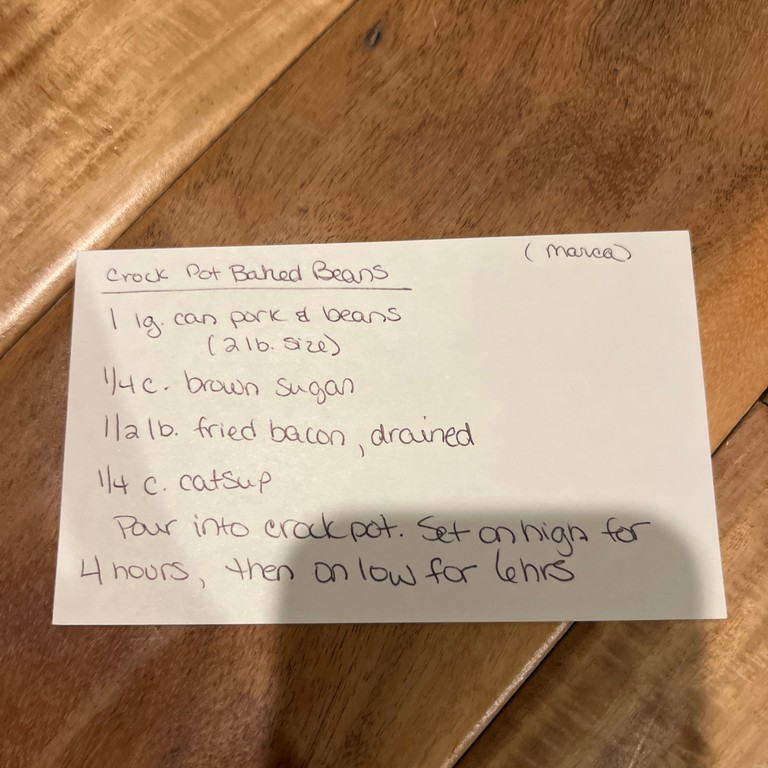 (Marca)
Crock Pot Baked Beans
1 lg. can pork & beans
(2 lb. size)
1/4 c. brown sugar
1/2 lb. fried bacon, drained
1/4 c. catsup
Pour into crock pot. Set on high for
4 hours, then on low for 6 hrs